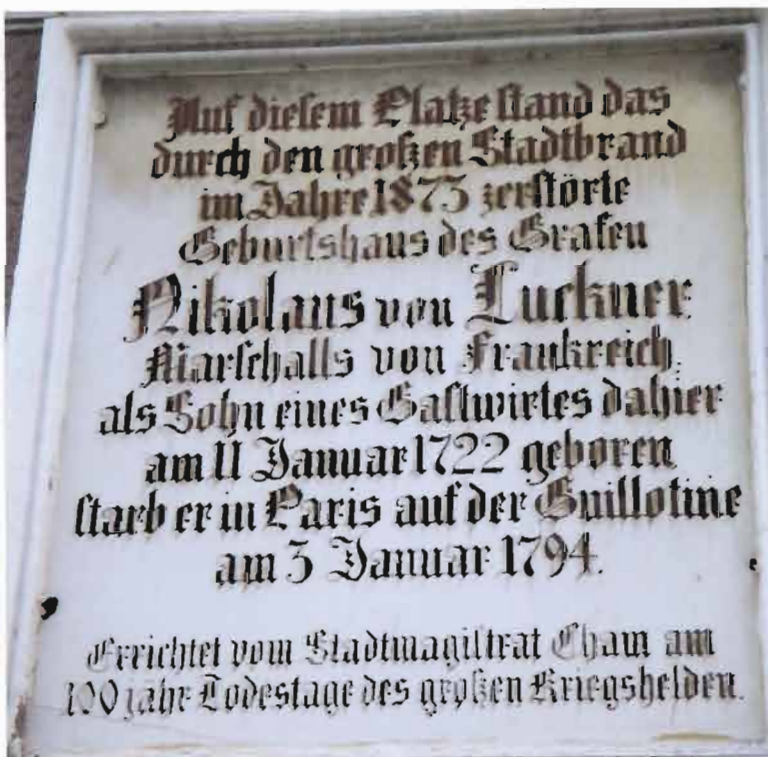 Auf diesem Platze stand das
durch den großen Stadtbrand
im Jahre 1873 zerstörte
Geburtshaus des Grafen
Nikolaus von Luckner
Marschalls von Frankreich,
als Sohn eines Gastwirtes dahier
am 11 Januar 1722 geboren
starb er in Paris auf der Guillotine
am 3 Januar 1794.
Errichtet vom Stadtmagistrat Cham am
100 jähr Todestage des großen Kriegshelden.